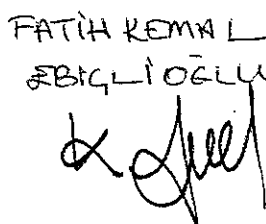 FATİH KEMAL
EBİÇLİOĞLU